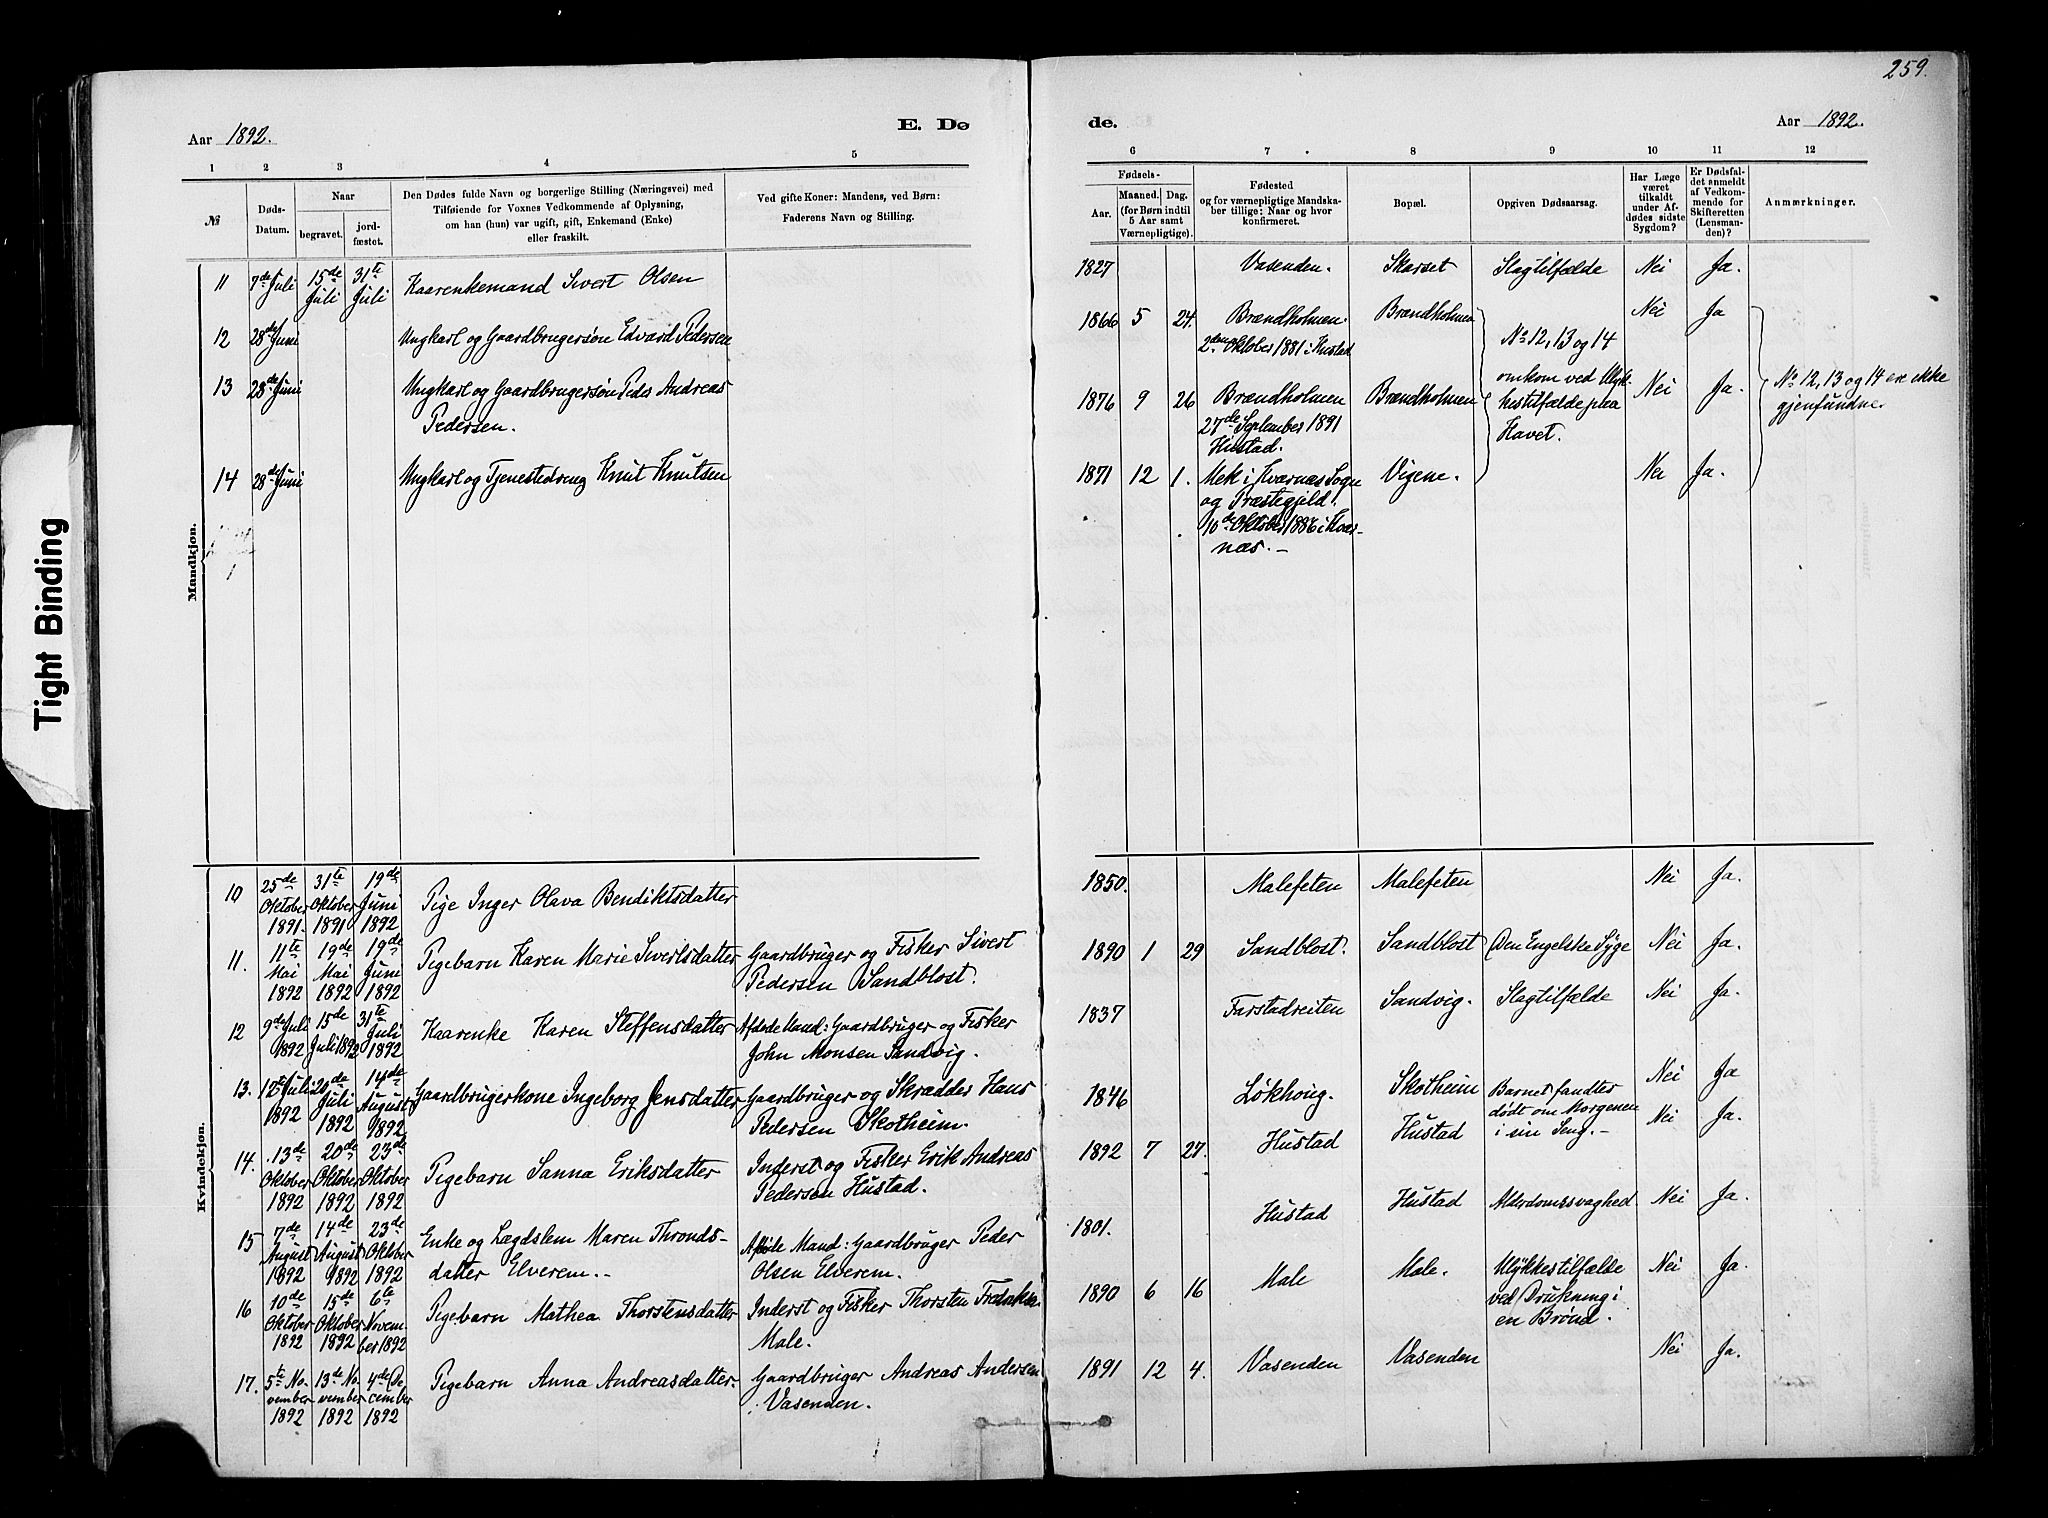 259.
Aar 1892.
E. Dø
de.
Aar 1892.
1 2 3 4 5
6 7 8 9 10 11 12
№
Døds-
Datum.
Naar
begravet.
jord-
fæstet.
Den Dødes fulde Navn og borgerlige Stilling (Næringsvei) med
Tilføiende for Voxnes Vedkommende af Oplysning,
om han (hun) var ugift, gift, Enkemand (Enke)
eller fraskilt.
Ved gifte Koner: Mandens, ved Børn:
Faderens Navn og Stilling.
Fødsels-
Aar.
Maaned. Dag.
(for Børn indtil
5 Aar samt
Værnepligtige).
Fødested
og for værnepligtige Mandska-
ber tillige: Naar og hvor
konfirmeret.
Bopæl.
Opgiven Dødsaarsag.
Har Læge
været
tilkaldt
under Af-
dødes sidste
Sygdom?
Er Dødsfal-
det anmeldt
af Vedkom-
mende for
Skifteretten
(Lensman-
den)?
Anmærkninger.
Tight Binding
Mandkjøn.
11
7de Juli
15de
Juli
31te
Juli
Kaarenkemand Sivert Olsen
1827
Vasenden.
Skarset
Slagtilfælde
Nei
Ja.
12
28de Juni
Ungkarl og Gaardbrugersøn Edvard Pedersen
1866 5 24.
Brændholmen.
2den Oktober 1881 i Hustad
Brændholmen
No 12, 13 og 14
omkom ved Ulyk-
kestilfælde paa
Havet.
Nei
Ja
No 12, 13 og 14 ere ikke
gjenfundne.
13
28de Juni
Ungkarl og Gaardbrugersøn Peder Andreas
Pedersen.
1876 9 26
Brændholmen
27de September 1891
Hustad.
Brændholmen
Nei
Ja.
14
28de Juni
Ungkarl og Tjenestedreng Knut Knutsen
1871 12 1.
Mek i Kværnæs Sogn
og Præstegjeld.
10de Oktober 1886 i Kvær-
næs.
Vigene.
Nei
Ja.
Kvindekjøn.
10
25de
Oktober
1891.
31te
Oktober
1891
19de
Juni
1892
Pige Inger Olava Bendiktsdatter
1850.
Malefeten
Malefeten
Nei
Ja.
11.
11te
Mai
1892
19de
Mai
1892
19de
Juni
1892
Pigebarn Karen Marie Sivertsdatter
Gaardbruger og Fisker Sivert
Pedersen Sandblost.
1890 1 29
Sandblost.
Sandblost
Den Engelske Syge
Nei
Ja.
12
9de Juli
1892
15de
Juli 1892
31te
Juli
1892
Kaarenke Karen Steffensdatter
Afdøde Mand: Gaardbruger og Fisker
John Monsen Sandvig.
1837
Farstadreiten
Sandvig.
Slagtilfælde
Nei
Ja.
13.
12te Juli
1892
20de
Juli
1892
14de
August
1892
Gaardbrugerkone Ingeborg Jensdatter
Gaardbruger og Skrædder Hans
Pedersen Skotheim.
1846
Løkhoug.
Skotheim
Nei
Ja
14.
13de
Oktober
1892
20de
Oktober
1892
23de
Oktober
1892
Pigebarn Sanna Eriksdatter
Inderst og Fisker Erik Andreas
Pedersen Hustad.
1892 7 27.
Hustad
Hustad
Barnet fandtes
dødt om Morgenen
i sin Seng.
Nei
Ja.
15
7de
August
1892
14de
August
1892
23de
Oktober
1892
Enke og Lægdslem Maren Thronds-
datter Elverem.
Afdøde Mand: Gaardbruger Peder
Olsen Elverem.
1801.
Hustad
Hustad
Alderdomssvaghed
Nei
Ja.
16
10de
Oktober
1892
15de
Oktober
1892
6te
Novem-
ber 1892
Pigebarn Mathea Thorstensdatter
Inderst og Fisker Thorsten Fredriksen
Male.
1890 6 16
Male
Male.
Ulykkestilfælde
ved Drukning i
en Brønd.
Nei
Ja.
17.
5te No-
vember
1892
13de No-
vember
1892
4de De-
cember
1892
Pigebarn Anna Andreasdatter.
Gaardbruger Andreas Andersen
Vasenden.
1891 12 4.
Vasenden
Vasenden
Nei
Ja.